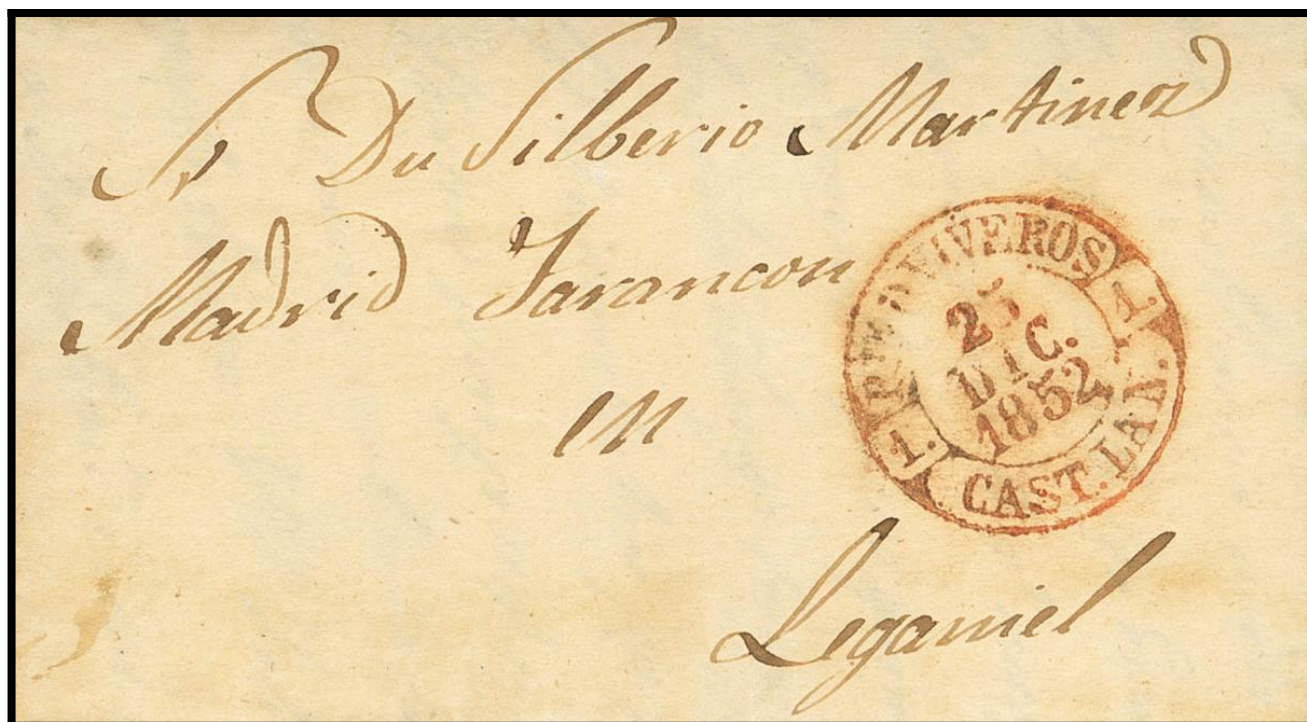 Sr Dn Silberio Martinez
Madrid Tarancon
en
Legamiel
PTE D VIVEROS
1.
25
DIC.
1852
1.
CAST. LA N.